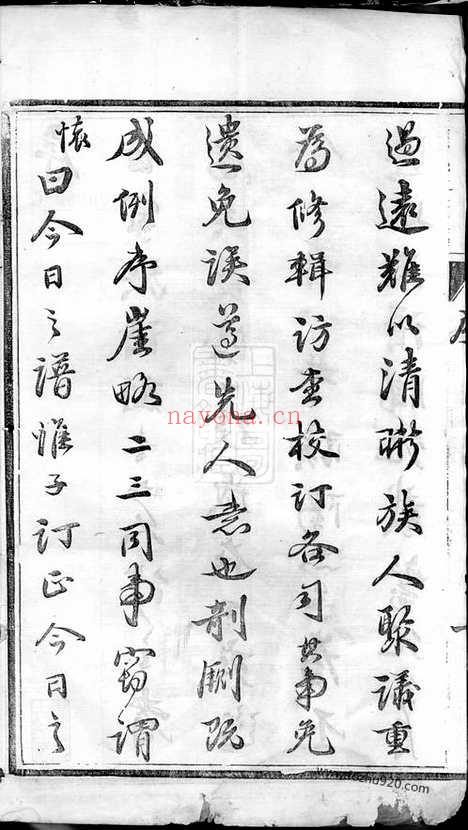 過遠難以清晰族人聚議重
為修輯訪查校訂各司其事免
遺免誤遵先人意也剞劂既
成例序崖略二三同事竊謂
懷曰今日之譜惟子訂正今日之
nayona.cn